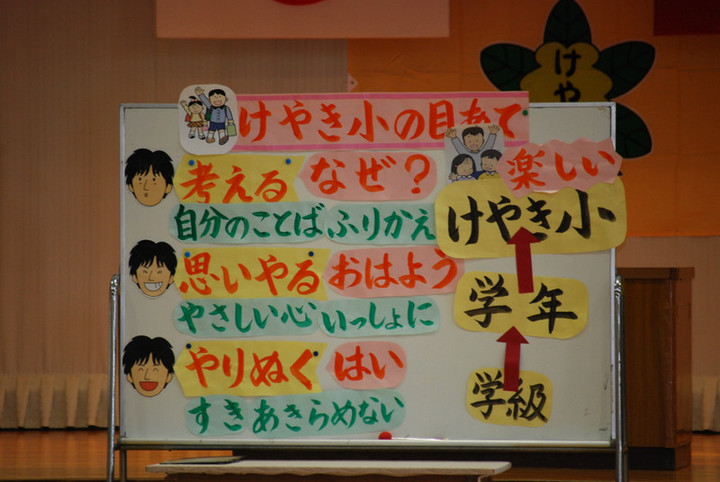 けや
けやき小の目あて
考える なぜ?
自分のことば ふりかえ
思いやる おはよう
やさしい心 いっしょに
やりぬく はい
すき あきらめない
楽しい
けやき小
学年
学級